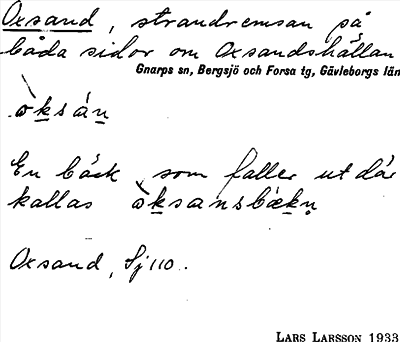 Oxsand, strandremsan på
båda sidor om Oxsandshällan
Gnarps sn, Bergsjö och Forsa tg, Gävleborgs län
òksán
En bäck som faller ut där
kallas òksansbækn̥
Oxsand, Sj 110.
LARS LARSSON 1933